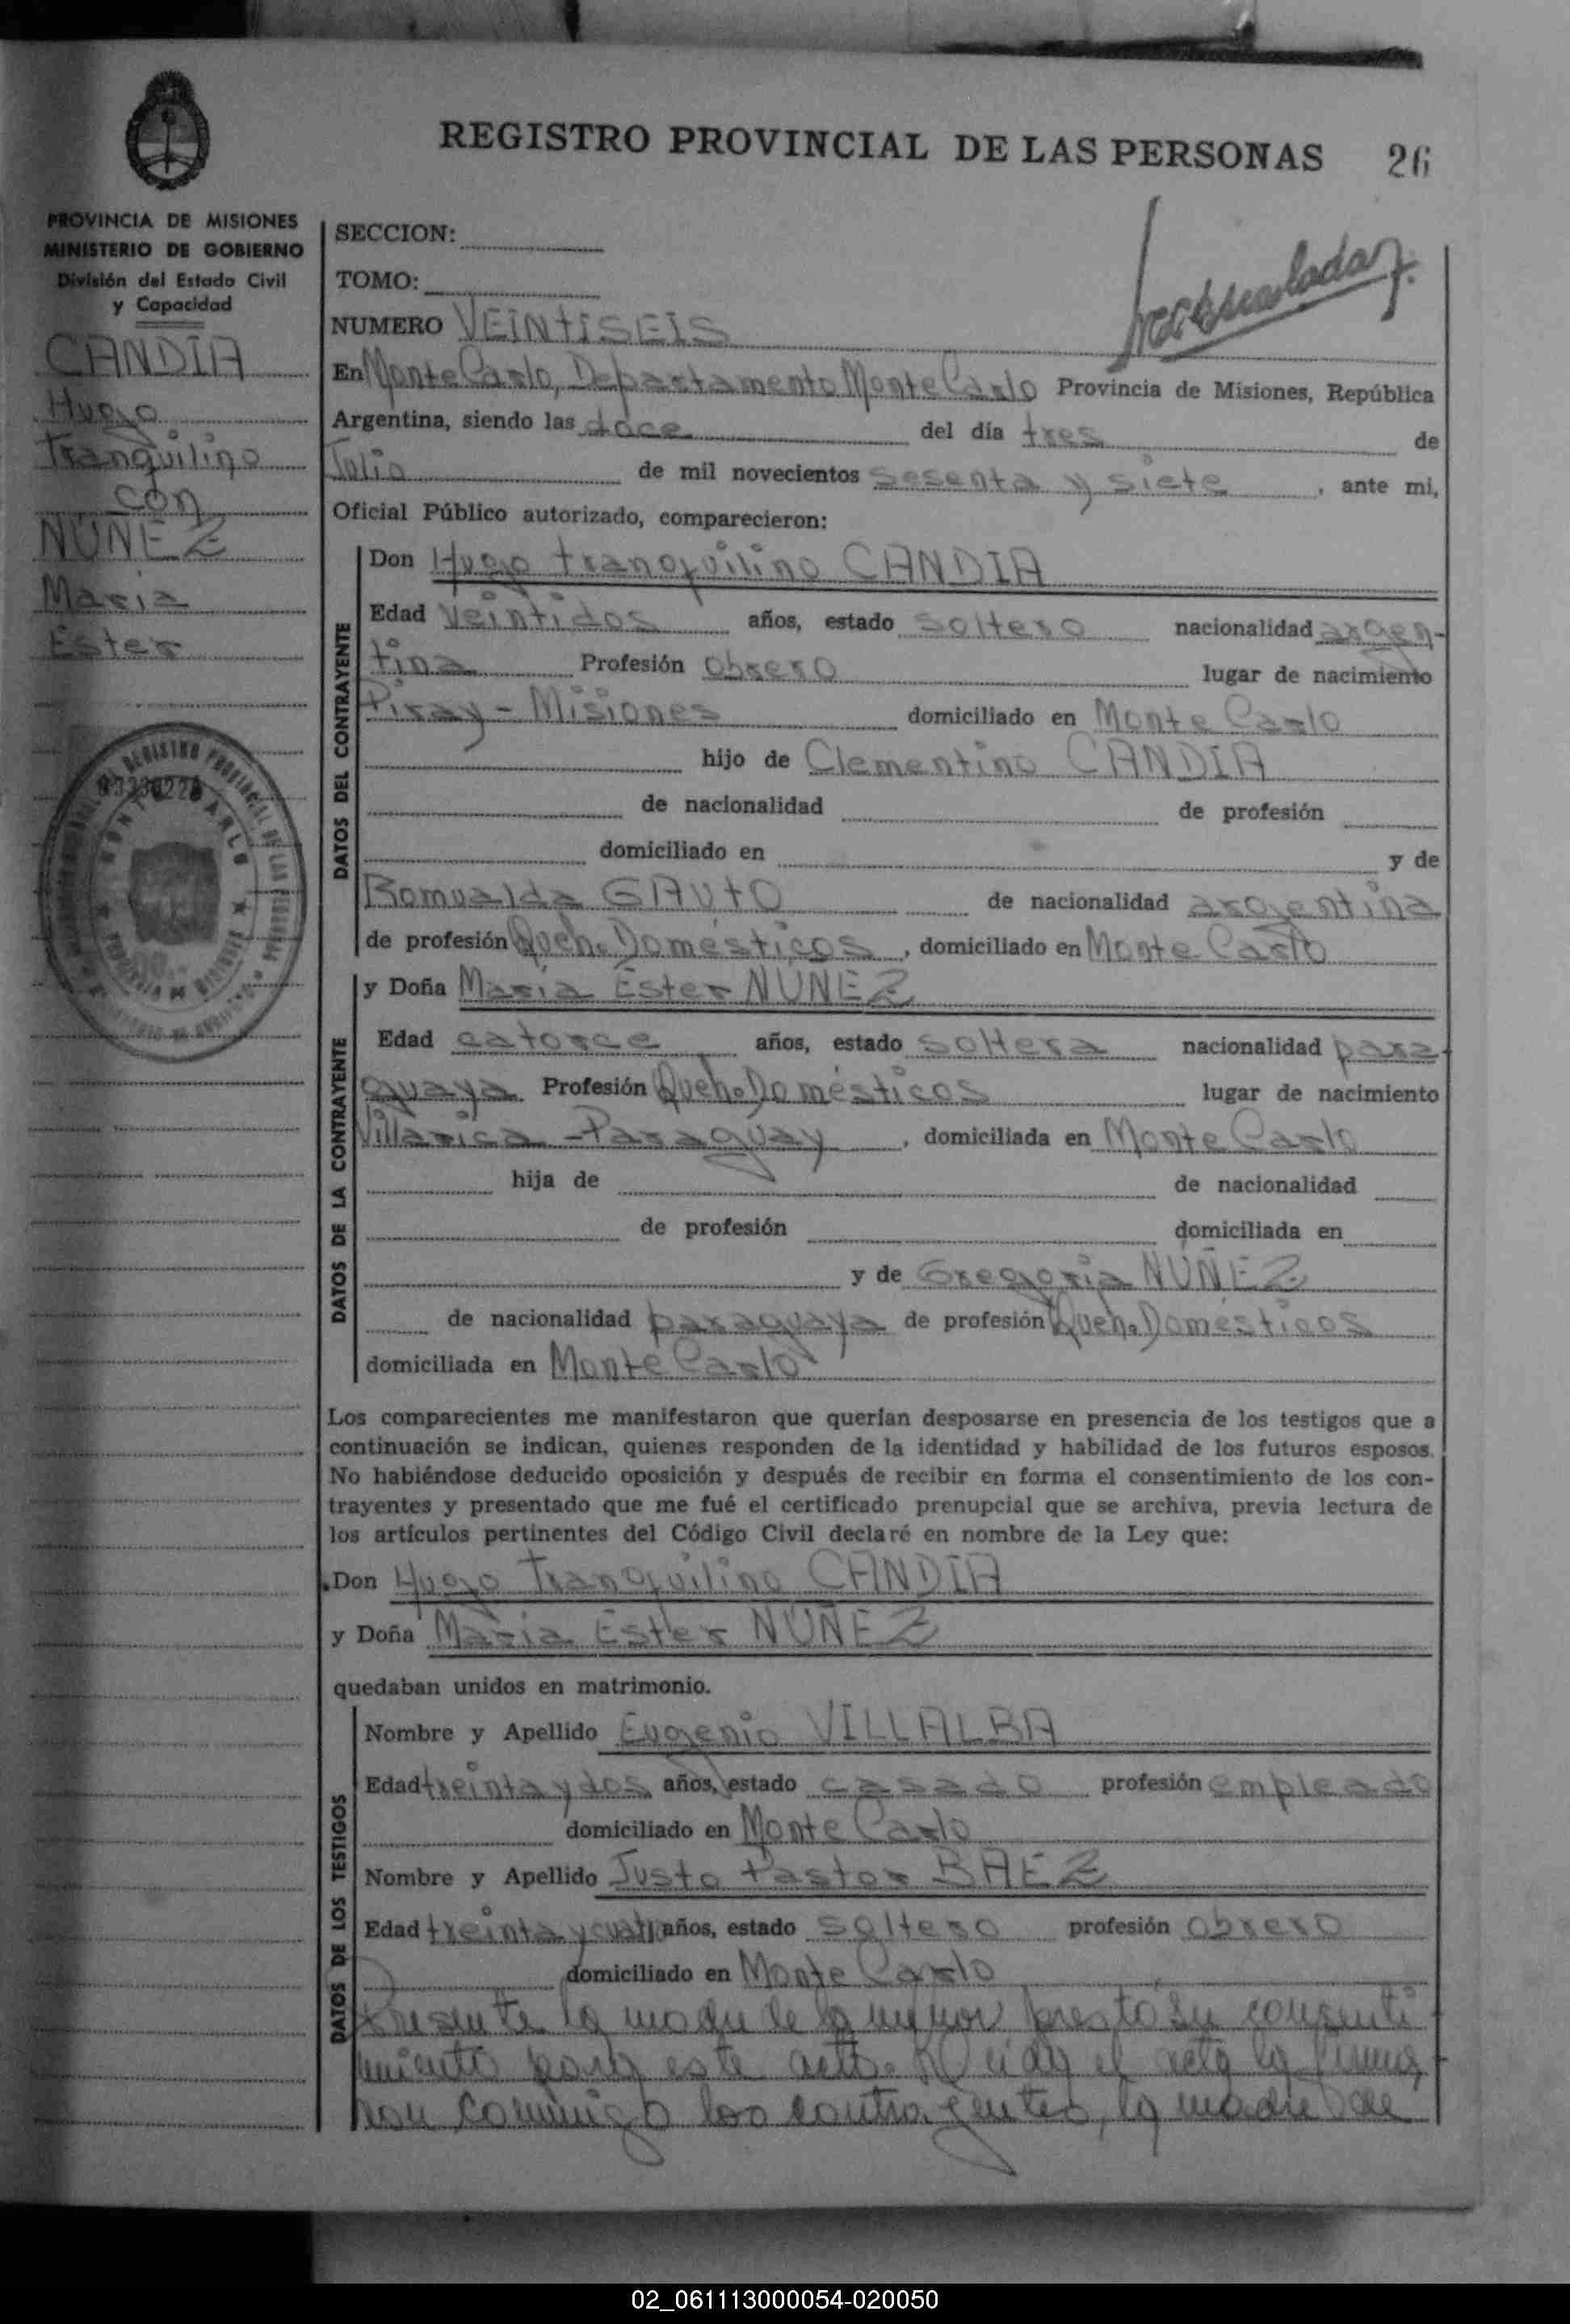 REGISTRO PROVINCIAL DE LAS PERSONAS 26
PROVINCIA DE MISIONES
MINISTERIO DE GOBIERNO
División del Estado Civil
y Capacidad
CANDIA
Hugo
Tranquilino
con
NUÑEZ
Maria
Ester
SECCION:
TOMO:
NUMERO VEINTISEIS
En Monte Carlo, Departamento Monte Carlo Provincia de Misiones, República
Argentina, siendo las doce del día tres de
Julio de mil novecientos sesenta y siete, ante mi,
Oficial Público autorizado, comparecieron:
DATOS DEL CONTRAYENTE
Don Hugo tranquilino CANDIA
Edad veintidos años, estado soltero nacionalidad argen-
tina Profesión obrero lugar de nacimiento
Piray - Misiones domiciliado en Monte Carlo
hijo de Clementino CANDIA
de nacionalidad de profesión
domiciliado en y de
Romualda GAUTO de nacionalidad argentina
de profesión Queh. Domésticos, domiciliado en Monte Carlo
DATOS DE LA CONTRAYENTE
y Doña Maria Ester NUÑEZ
Edad catorce años, estado soltera nacionalidad para-
guaya Profesión Queh. Domésticos lugar de nacimiento
Villarica - Paraguay, domiciliada en Monte Carlo
hija de de nacionalidad
de profesión domiciliada en
y de Gregoria NUÑEZ
de nacionalidad paraguaya de profesión Queh. Domésticos
domiciliada en Monte Carlo
Los comparecientes me manifestaron que querían desposarse en presencia de los testigos que a
continuación se indican, quienes responden de la identidad y habilidad de los futuros esposos.
No habiéndose deducido oposición y después de recibir en forma el consentimiento de los con-
trayentes y presentado que me fué el certificado prenupcial que se archiva, previa lectura de
los artículos pertinentes del Código Civil declaré en nombre de la Ley que:
Don Hugo Tranquilino CANDIA
y Doña Maria Ester NUÑEZ
quedaban unidos en matrimonio.
DATOS DE LOS TESTIGOS
Nombre y Apellido Eugenio VILLALBA
Edad treinta y dos años, estado casado profesión empleado
domiciliado en Monte Carlo
Nombre y Apellido Justo Pastor BAEZ
Edad treinta y cuatro años, estado soltero profesión obrero
domiciliado en Monte Carlo
Presente la madre de la menor prestó su consenti
miento para este acto. Leida el acta la firma
ron conmigo los contrayentes, la madre de
02_061113000054-020050